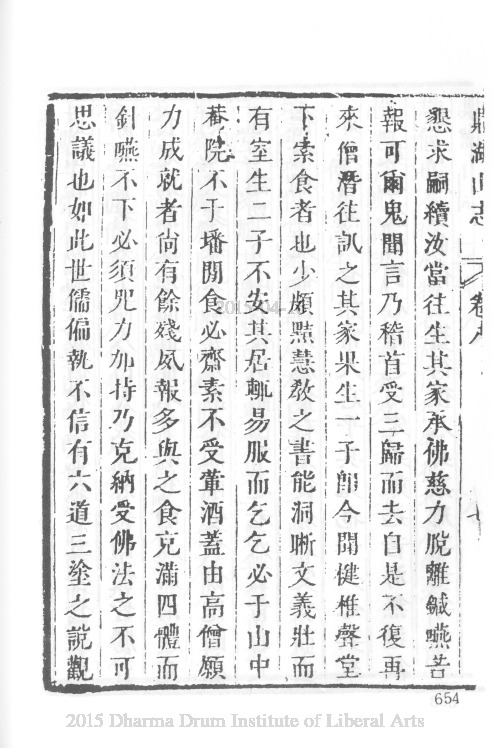 鼎湖山志 卷八
懇求嗣續汝當往生其家承佛慈力脫離鍼嚥苦
報可爾鬼聞言乃稽首受三歸而去自是不復再
來僧潛往訊之其家果生一子卽今聞楗椎聲堂
下索食者也少頗黠慧敎之書能洞晰文義壯而
有室生二子不安其居輒易服而乞乞必于山中
菴院不于墦閒食必齋素不受葷酒蓋由高僧願
力成就者尙有餘殘夙報多與之食充滿四體而
針嚥不下必須咒力加持乃克納受佛法之不可
思議也如此世儒偏執不信有六道三塗之說觀
2015-04-
654
2015 Dharma Drum Institute of Liberal Arts